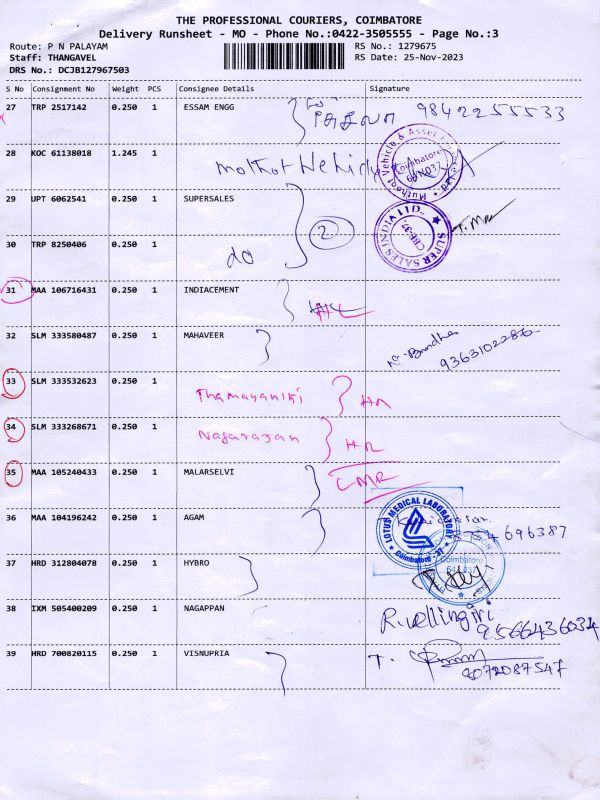 THE PROFESSIONAL COURIERS, COIMBATORE
Delivery Runsheet - MO - Phone No.:0422-3505555 - Page No.:3
Route: P N PALAYAM
Staff: THANGAVEL
DRS No.: DCJB127967503
RS No.: 1279675
RS Date: 25-Nov-2023
S No Consignment No Weight PCS Consignee Details Signature
27 TRP 2517142 0.250 1 ESSAM ENGG 9842255533
28 KOC 61138018 1.245 1
Muthoot Vehicle & Asset
Coimbatore
29 UPT 6062541 0.250 1 SUPERSALES
2
SUPER SALES INDIA LTD.,
CBE-37.
30 TRP 8250406 0.250 1
do
31 MAA 106716431 0.250 1 INDIACEMENT
32 SLM 333580487 0.250 1 MAHAVEER
9363102286
33 SLM 333532623 0.250 1 Thamayanthi
34 SLM 333268671 0.250 1 Nagarajan
35 MAA 105240433 0.250 1 MALARSELVI
36 MAA 104196242 0.250 1 AGAM
LOTUS MEDICAL LABORATORY
Coimbatore - 37
37 HRD 312804078 0.250 1 HYBRO
Coimbatore
38 IXM 505400209 0.250 1 NAGAPPAN R.vellingiri
9566436034
39 HRD 700820115 0.250 1 VISNUPRIA T.
8072087547